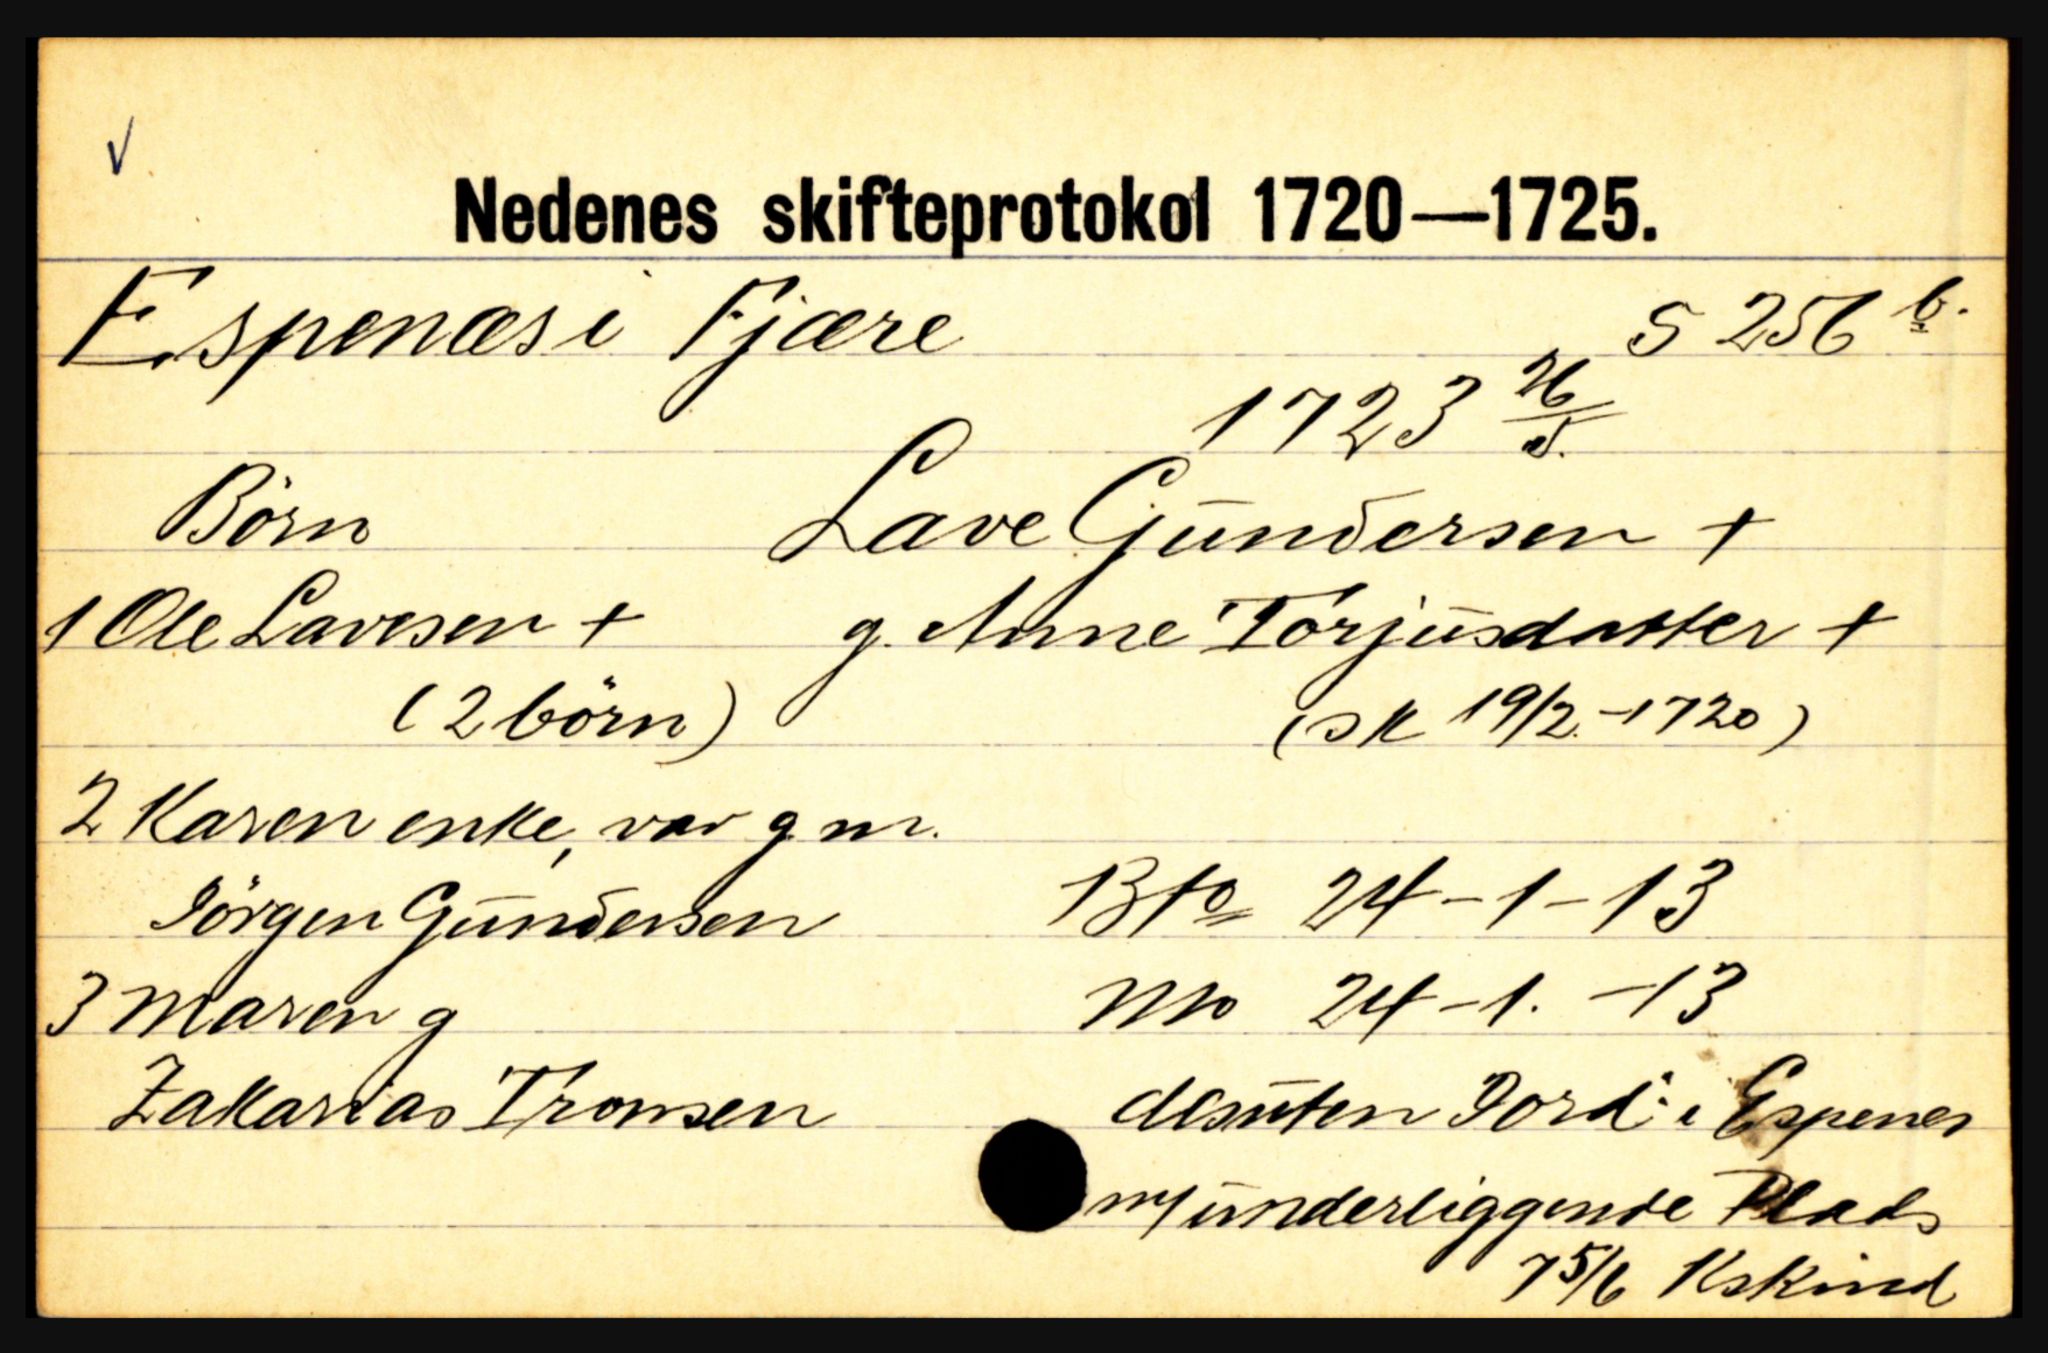 Nedenes skifteprotokol 1720—1725.
Espenæs i Fjære S 256 b.
1723 26/5.
Börn Lave Gundersen +
1 Ole Lavesen + g. Anne Torjusdatter +
(2 börn) (sk 19/2.-1720)
2 Karen enke, var g m.
Jörgen Gundersen Bto 24-1-13
3 Maren g No 24-1.-13
Zakarias Tronsen desuten Jord: i Espenes
m/underliggende Plads
7 5/6 Kskind